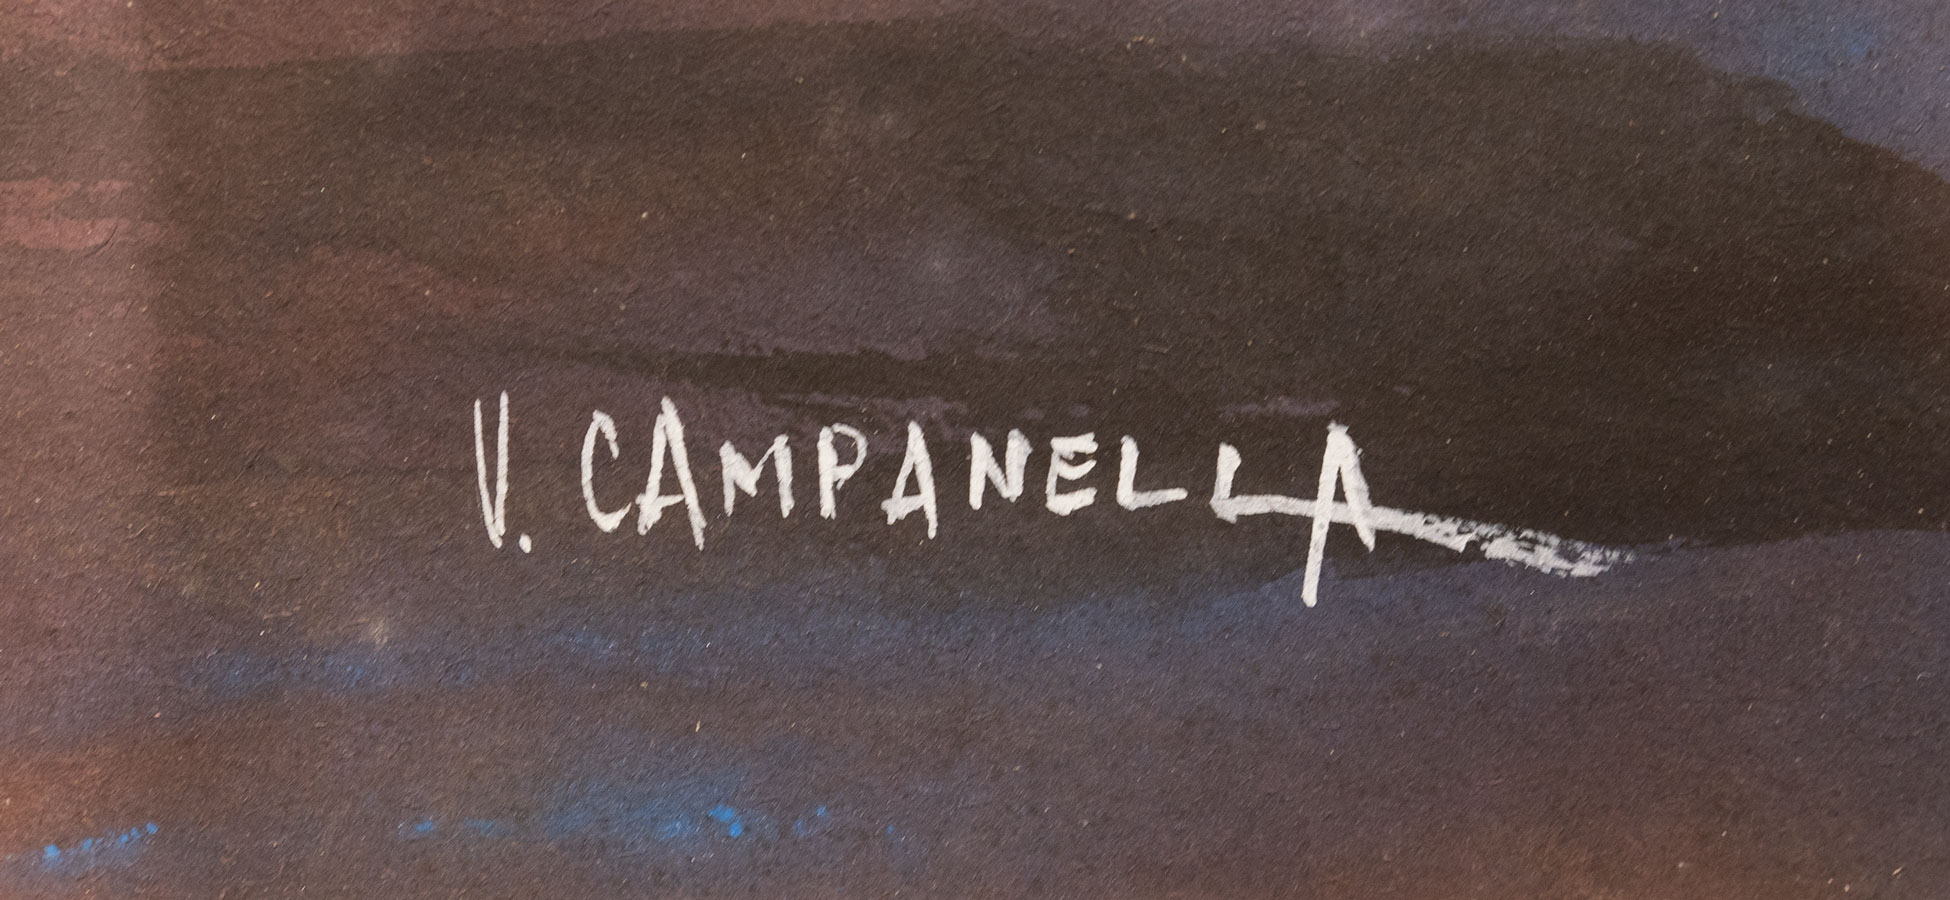 V. CAMPANELLA